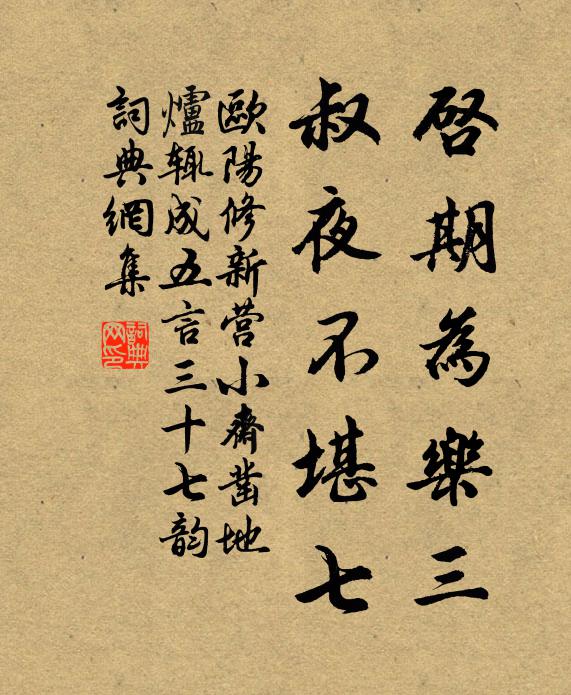 啓期為樂三
叔夜不堪七
歐陽修新营小齋凿地
爐輒成五言三十七韵
詞典網集
詞典网印